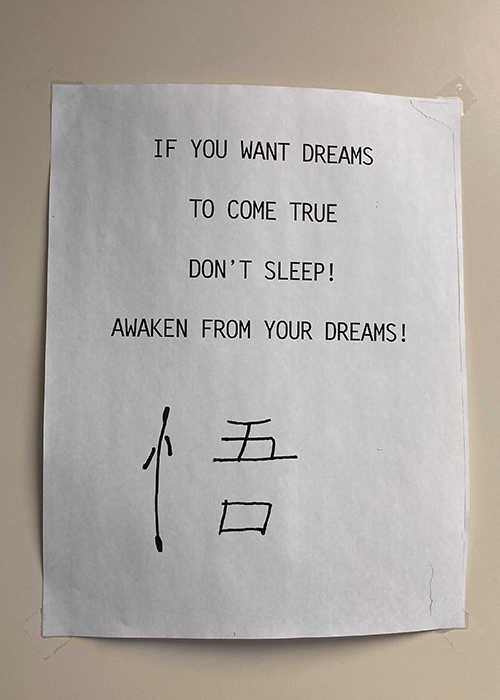 IF YOU WANT DREAMS
TO COME TRUE
DON'T SLEEP!
AWAKEN FROM YOUR DREAMS!
悟